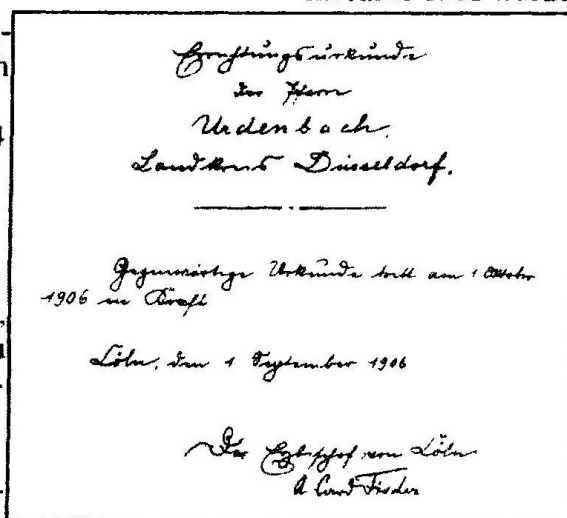 Errichtungsurkunde
der Pfarre
Urdenbach,
Landkreis Düsseldorf.
Gegenwärtige Urkunde tritt am 1 Oktober
1906 in Kraft
Cöln, den 1 September 1906
Der Erzbischof von Cöln
A Card Fischer